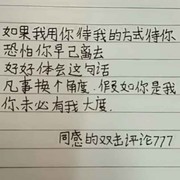 如果我用你待我的方式待你
恐怕你早已离去
好好体会这句话
凡事换个角度，假如你是我
你未必有我大度。
同感的双击评论777